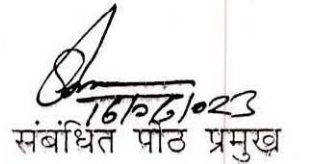 16/06/2023
संबंधित पीठ प्रमुख